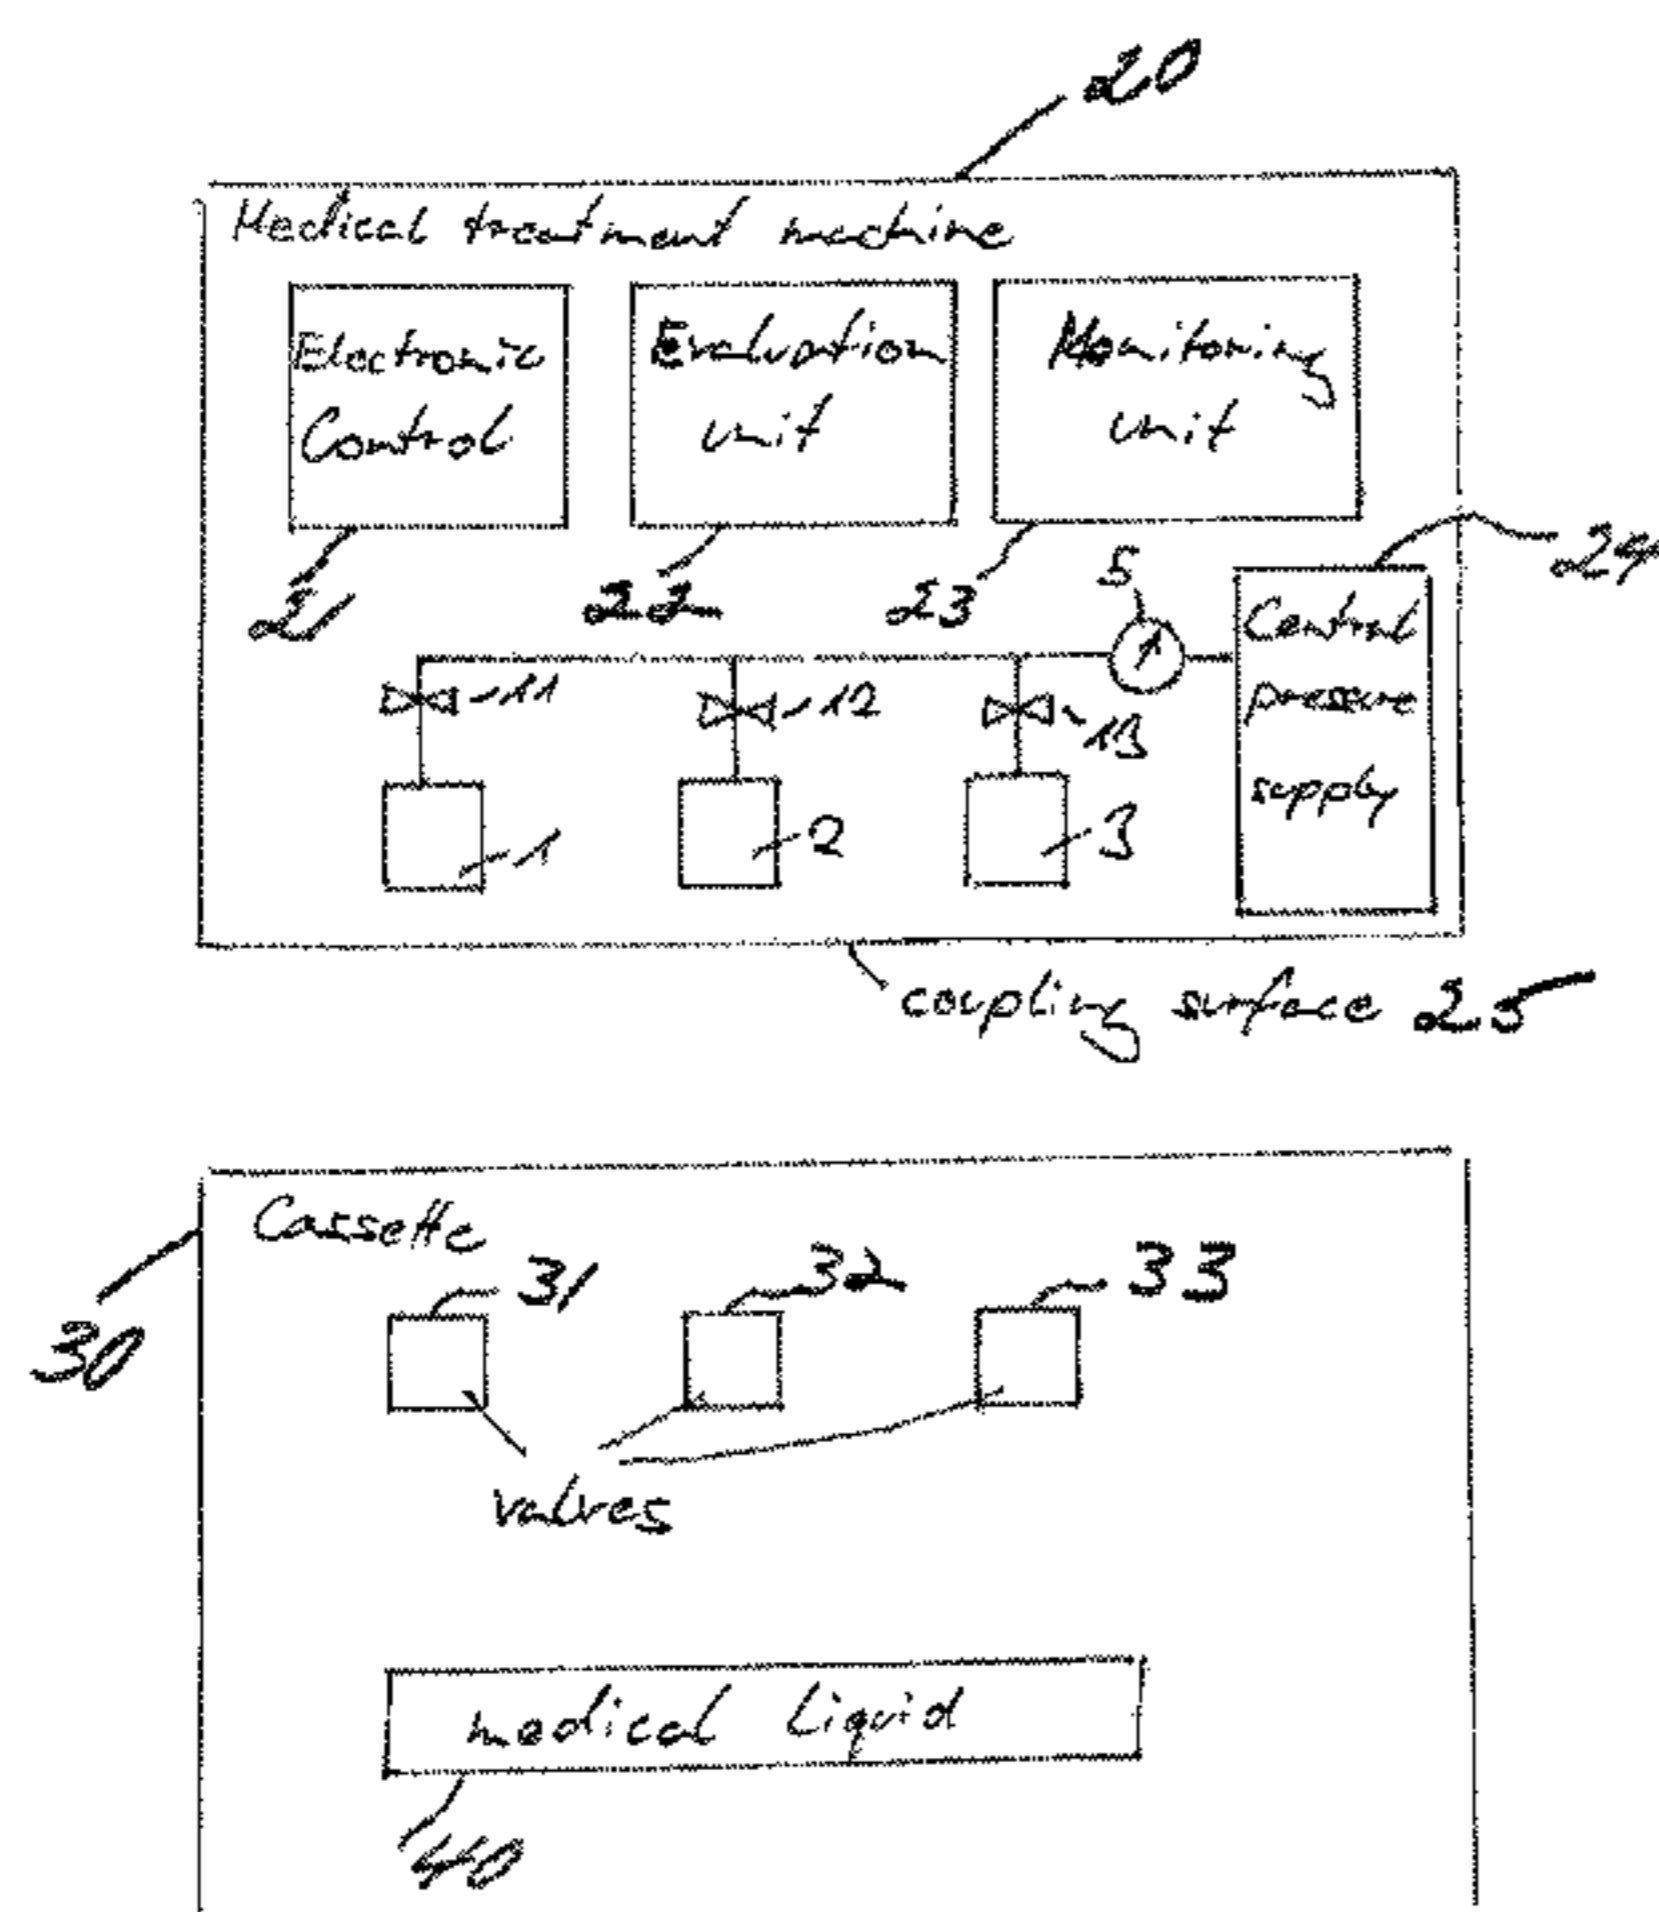 20
Medical treatment machine
Electronic
Control
Evaluation
unit
Monitoring
unit
21
22
23
5
24
Central
pressure
supply
11
12
13
1
2
3
coupling surface 25
Cassette
30
31
32
33
valves
medical liquid
40